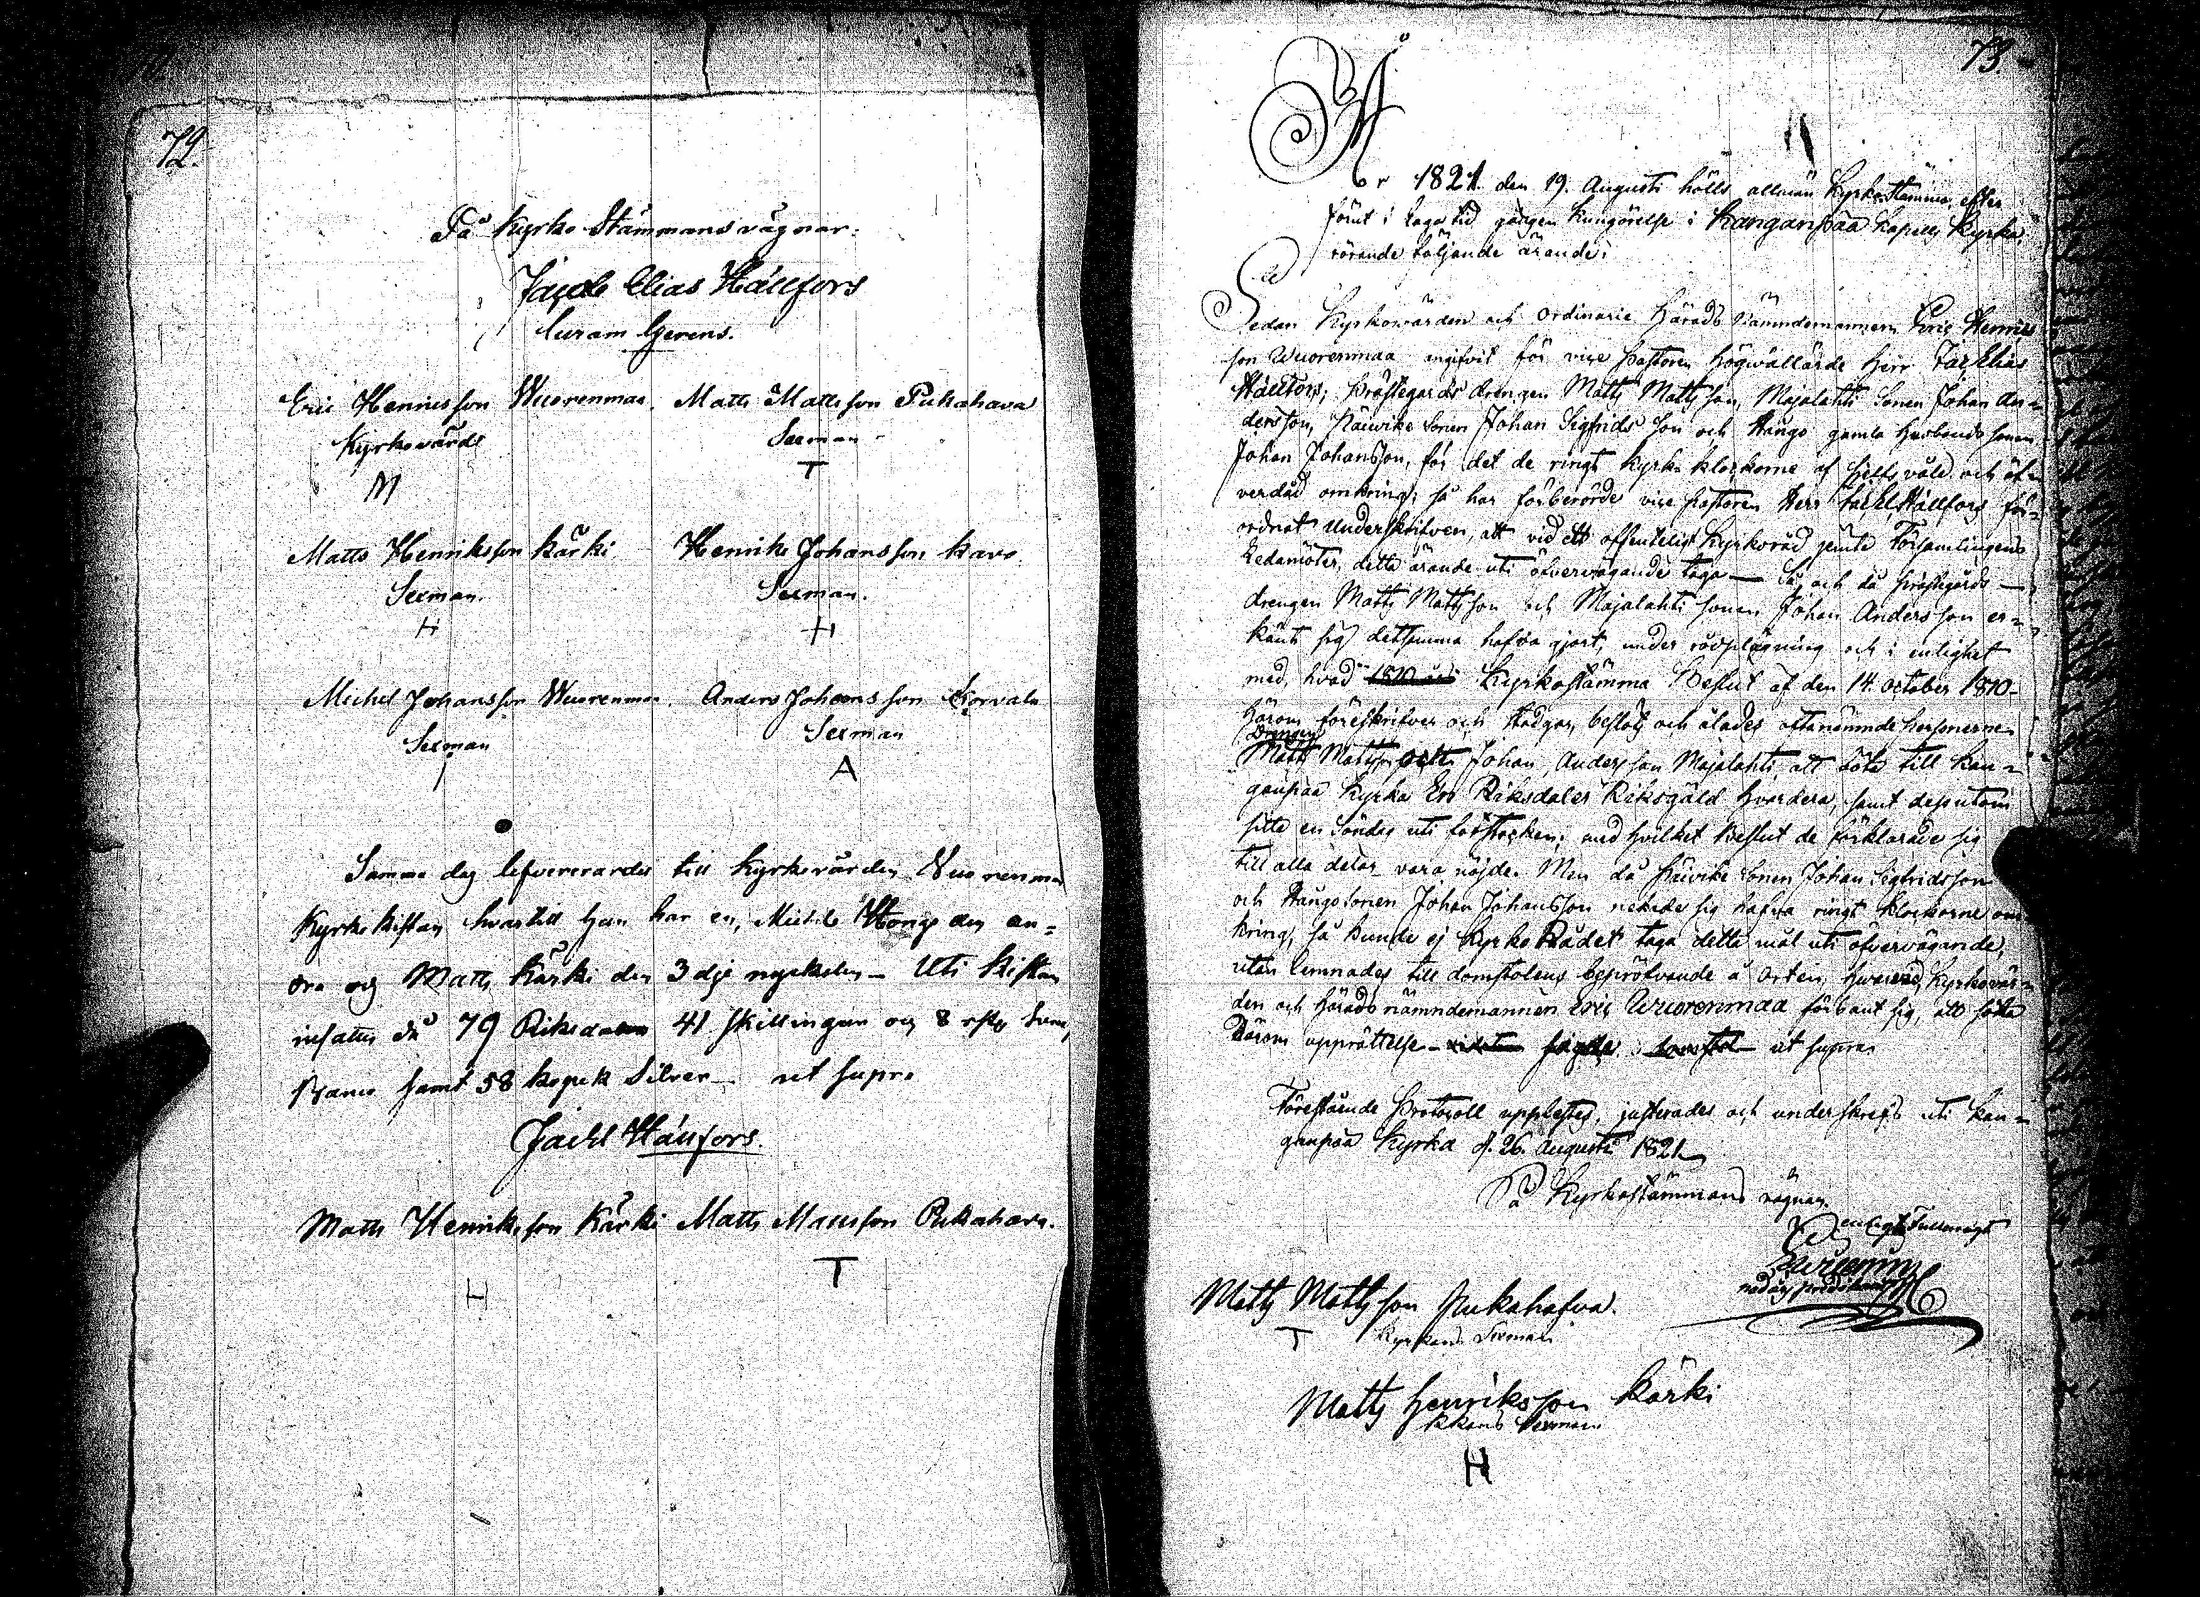 72.
På Kyrko Stämmans vägnar:
Jacob Elias Hällfors
Curam Gerens.
Eric Henricsson Wuorenmaa. Matts Mattsson Pukahava
Kyrkovärd Sexman
M T
Matts Henriksson Kärki Henrik Johansson Kavo
Sexman. Sexman.
H H
Michel Johansson Wuorenmaa. Anders Johansson Korvala
Sexman Sexman
A
Samma dag lefvererades till Kyrkovärden Vuorenmaa
Kyrkokistan hvartill han har en, Michel Hongo den an=
dra och Matts Kärki den 3dje nyckelen – Uti Kistan
insattes då 79 Riksdaler 41 skillingar och 8 rst
Banco samt 58 kopek Silver – ut supra
Jac El Hällfors.
Matts Henriksson Kärki Matts Mattsson Pukahava.
H T
73.
År 1821. den 19. Augusti hölls allmän Kyrkostämma, efter
förut i laga tid gången kungörelse i Kanganpää Capells Kyrka,
rörande följande ärande:
Sedan Kyrkowärden och ordinarie Härads Nämndemannen Eric Henrics
son Wuorenmaa angifvit för vice Pastoren Högvällärde Herr Jac. Elias
Hällfors, Prästegårds drengen Matts Mattsson, Majalahti Sonen Johan An=
dersson, Päivike Sonen Johan Sigfridsson och Hango gamla husbonds sonen
Johan Johansson, för det de ringt Kyrko klockorne af sjelfsvåld och öf=
verdåd omkring; så har förberörde vice Pastoren Herr Jac El. Hällfors för=
ordnat Underskrifven, att vid ett offenteligt Kyrkoråd jemte Församlingens
Ledamöter, detta ärande uti öfvervägande taga — Så och då Prästegårds —
drengen Matts Mattsson och Majalahti sonen Johan Andersson er=
känt sig detsamma hafva gjort, under rådplägning och i enlighet
med, hvad Kyrkostämma Beslut af den 14. October 1810
härom föreskrifver och stadgar, beslöts och ålades oftanämnde personerne
Drengen
Matts Mattsson och Johan Andersson Majalahti att böta till Kan=
ganpää Kyrka En Riksdaler Riksgäld hvardera, samt desutom
sitta en Söndag uti fotstocken; med hvilket Beslut de förklarade sig
till alla delar vara nöjde. Men då Päivike Sonen Johan Sigfridsson
och Hangosonen Johan Johansson nekade sig hafva ringt klockorne om
kring, så kunde ej Kyrko Rådet taga detta mål uti öfvervägande,
utan lemnades till domstolens bepröfvande å Orten, Kyrkovär=
den och Häradsnämndemannen Eric Wuorenmaa förbant sig, att söka
Därom upprättelse – ut supra
Förestående Protocoll upplästes, justerades och underskrefs uti Kan=
ganpää Kyrka d. 26. Augusti 1821
På Kyrkostämmans vägnar
enligt Fullmagt
Matts Mattsson Pukahafva.
T Kyrkans Sexman
Matts Henriksson Kärki
Sexman
H